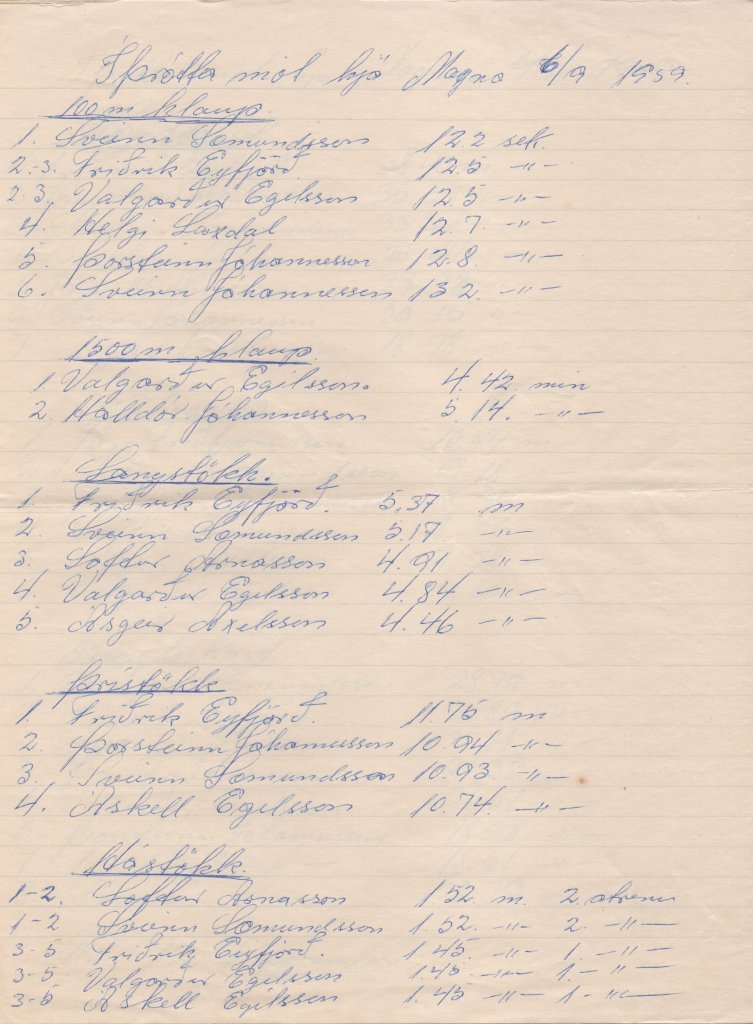 Íþrótta mót hjá Magna 6/9 1959.
100 m hlaup.
1. Sveinn Sæmundsson 12.2 sek.
2.-3. Friðrik Eyfjörð 12.5 -"-
2.3. Valgarður Egilsson 12.5 -"-
4. Helgi Laxdal 12.7. -"-
5. Þorsteinn Jóhannesson 12.8. -"-
6. Sveinn Jóhannesson 13 2. -"-
1500 m hlaup.
1. Valgarður Egilsson. 4.42. min
2. Halldór Jóhannesson 5.14. -"-
Langstökk.
1. Friðrik Eyfjörð. 5,37 m
2. Sveinn Sæmundsson 5,17 -"-
3. Loftur Arnasson 4.91 -"-
4. Valgarður Egilsson 4.84 -"-
5. Ásgeir Axelsson 4.46 -"-
Þrístökk
1. Friðrik Eyfjörð. 11.75 m
2. Þorsteinn Jóhannesson 10.94 -"-
3. Sveinn Sæmundsson 10.93. -"-
4. Áskell Egilsson 10.74. -"-
Hástökk.
1-2. Loftur Arnasson 1.52. m. 2. atrenu
1-2 Sveinn Sæmundsson 1.52. -"- 2. -"-
3-5 Friðrik Eyfjörð. 1.45. -"- 1. -"-
3-5 Valgarður Egilsson 1.45 -"- 1. -"-
3-5 Áskell Egilsson 1.45 -"- 1 -"-